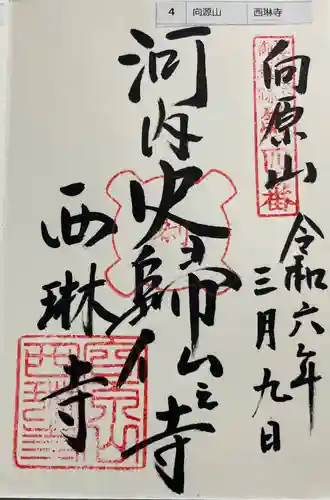 4 向源山 西琳寺
向原山
令和六年
三月九日
河内史歸之寺
西琳寺